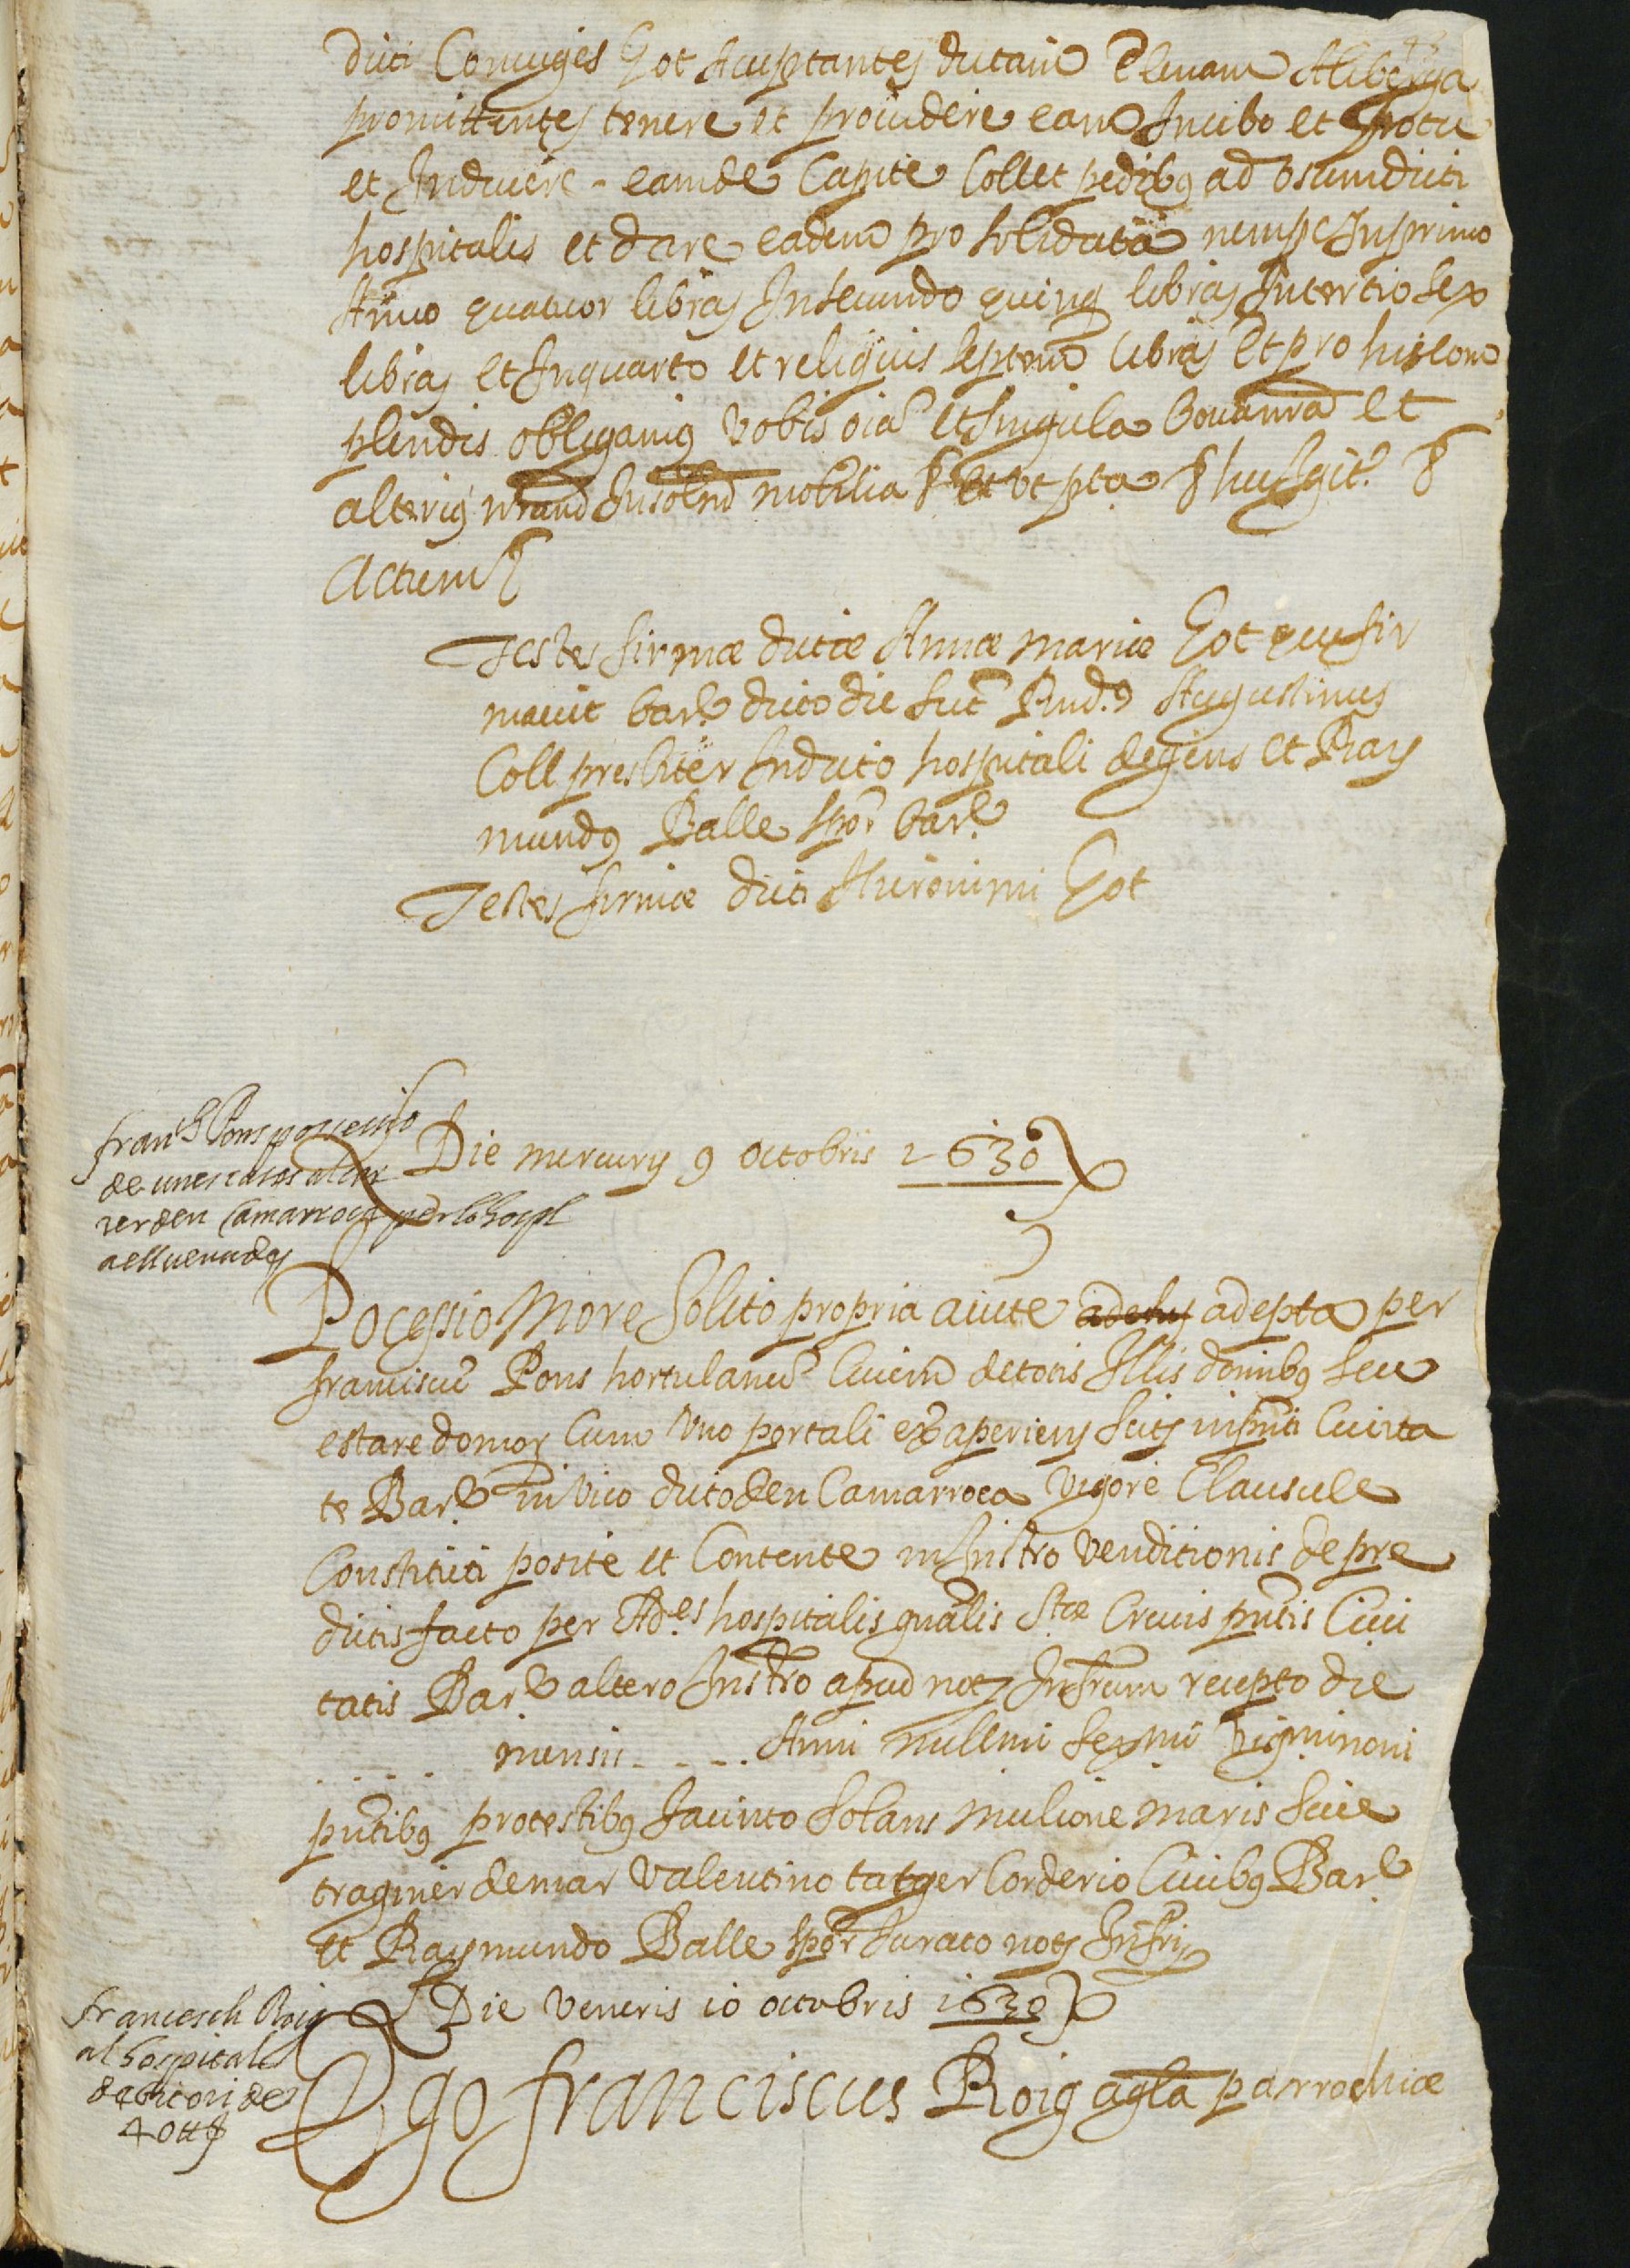 dicti Coniuges Got Acceptantes dictam Elenam Alibe
promittentes tenere et prouidere eam In cibo et potu
et Induere eam de Capite Coll et pedibꝫ ad osum dicti
hospitalis et dare eadem pro solidata nempe In primo
Anno quatuor libras In secundo quinq libras In tertio sex
libras et In quarto et reliquis septem libras Et pro his com
plendis obligamꝰ vobis oia et singula bona nra et
alteriꝰ nrum Insolm mobilia & et vt pta &
Actum &
Testes firmæ dictæ Annæ Mariæ Got que fir
mauit bar.e dicto die sut Rnd.9 Augustinus
Coll presbiter In dicto hospitali degens et Ray
mundꝰ Balle spor bar.e
Testes firmæ dicti Hieronimi Got
fran.ch Pons possessio
de unes cases al car
rer den Camarroca per lo hospl
a ell venudes
Die mercurij 9 octobris 1630
Pocessio More Solito propria aucte adepta per
franciscu Pons hortulanu Ciuem de totis Illis domibꝰ seu
estare domor Cum Vno portali ex aperiens scitis in pnti Ciuita
te Bar.e in Vico dicto den Camarroca Vigore Clausule
Constituti posite et Contente in Instro venditionis de pre
dictis facto per Ad.es hospitalis gnalis S.tæ Crucis pntis Ciui
tatis Bar.e altero Instro apud not Infrum recepto die
. . . . . mensis - - - . Anni millmi sexmi vigmi noni
pntibꝰ pro testibꝰ Jacinto Solans mulione maris siue
traginer de mar Valentino tatger Corderio Ciuibꝰ Bar.e
et Raymundo Balle spor Jurato notj Infri
francesch Roig
al hospital
de
40 ₶
Die Veneris 10 octobris 1630
Ego franciscus Roig agla parrochiæ